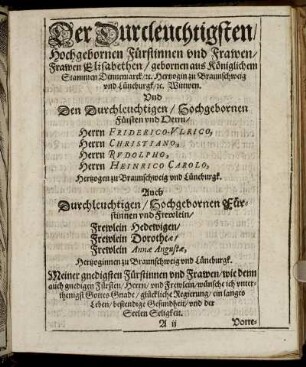 Der Durcleuchtigsten/
Hochgebornen Fürstinnen vnd Frawen/
Frawen Elisabethen/ gebornen aus Königlichem
Stammen Dennemarck/ꝛc. Hertzogin zu Braunschweig
vnd Lüneburgk/ꝛc. Witwen.
Vnd
Den Durchleuchtigen/ Hochgebornen
Fürsten vnd Herrn/
Herrn FRIDERICO-VLRICO,
Herrn CHRISTIANO,
Herrn RVDOLPHO,
Herrn HEINRICO CAROLO,
Hertzogen zu Braunschweig vnd Lüneburgk.
Auch
Durchleuchtigen/ Hochgebornen Für-
stinnen vnd Frewlein/
Frewlein Hedewigen/
Frewlein Dorothea/
Frewlein Annæ Augustæ,
Hertzoginnen zu Braunschweig vnd Lüneburgk.
Meiner gnedigsten Fürstinnen vnd Frawen/ wie denn
auch gnedigen Fürsten/ Herrn/ vnd Frewlein/ wünsche ich vnter-
thenigst Gottes Gnade/ glückliche Regierung/ ein langes
Leben/ bestendige Gesundheit/ vnd der
Seelen Seligkeit.
A ii
Vorre-